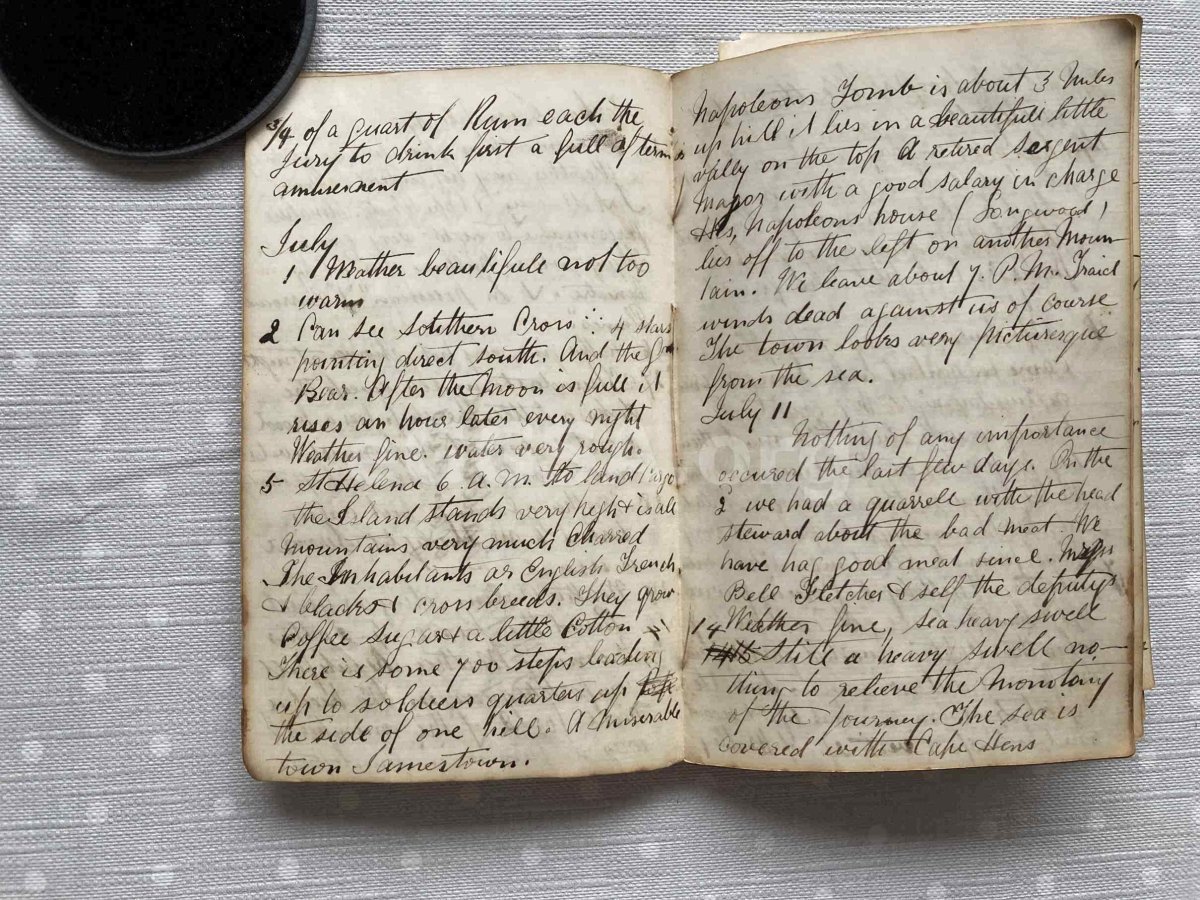 3/4 of a quart of Rum each the
Jury to drink first a full afternns
amusement
July
1 Weather beautifull not too
warm
2 Can see Southern Cross 4 stars
pointing direct south. And the
Bear. After the Moon is full it
rises an hour later every night
Weather fine. water very rough.
5 St Helena 6. a. m. to land Cargo
the Island stands very high & is all
Mountains very much Charred
The Inhabitants ar English French
& blacks & cross breeds. They grow
Coffee Sugar & a little Cotton
There is some 700 steps leading
up to soldiers quarters up
the side of one hill. A Miserable
town Jamestown.
Napoleons Tomb is about 3 Miles
up hill it lies in a beautifull little
vally on the top A retired Sergent
Major with a good salary in charge
His, Napoleons house (Longwood)
lies off to the left on another Moun-
tain. We leave about 7. P.M. Traid
winds dead against us of course
The town looks very picturesque
from the sea.
July 11
Nothing of any importance
occured the last few days. On the
2 we had a quarrell with the head
steward about the bad meat. We
have had good meat since.
Bell Fletcher & self the deputys
14 Weather fine, sea heavy swell
Still a heavy swell no-
thing to relieve the Monotany
of the journey. The sea is
covered with Cape Hens